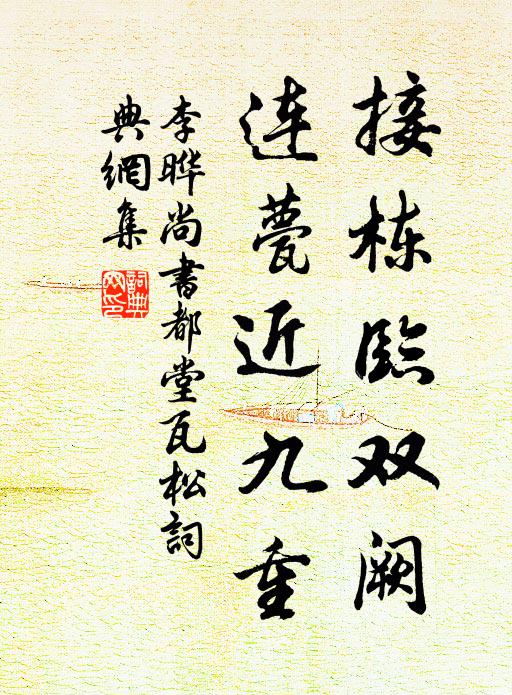 接栋臨双阙
連甍近九重
李晔尚書都堂瓦松詞
典網集
詞典
网印